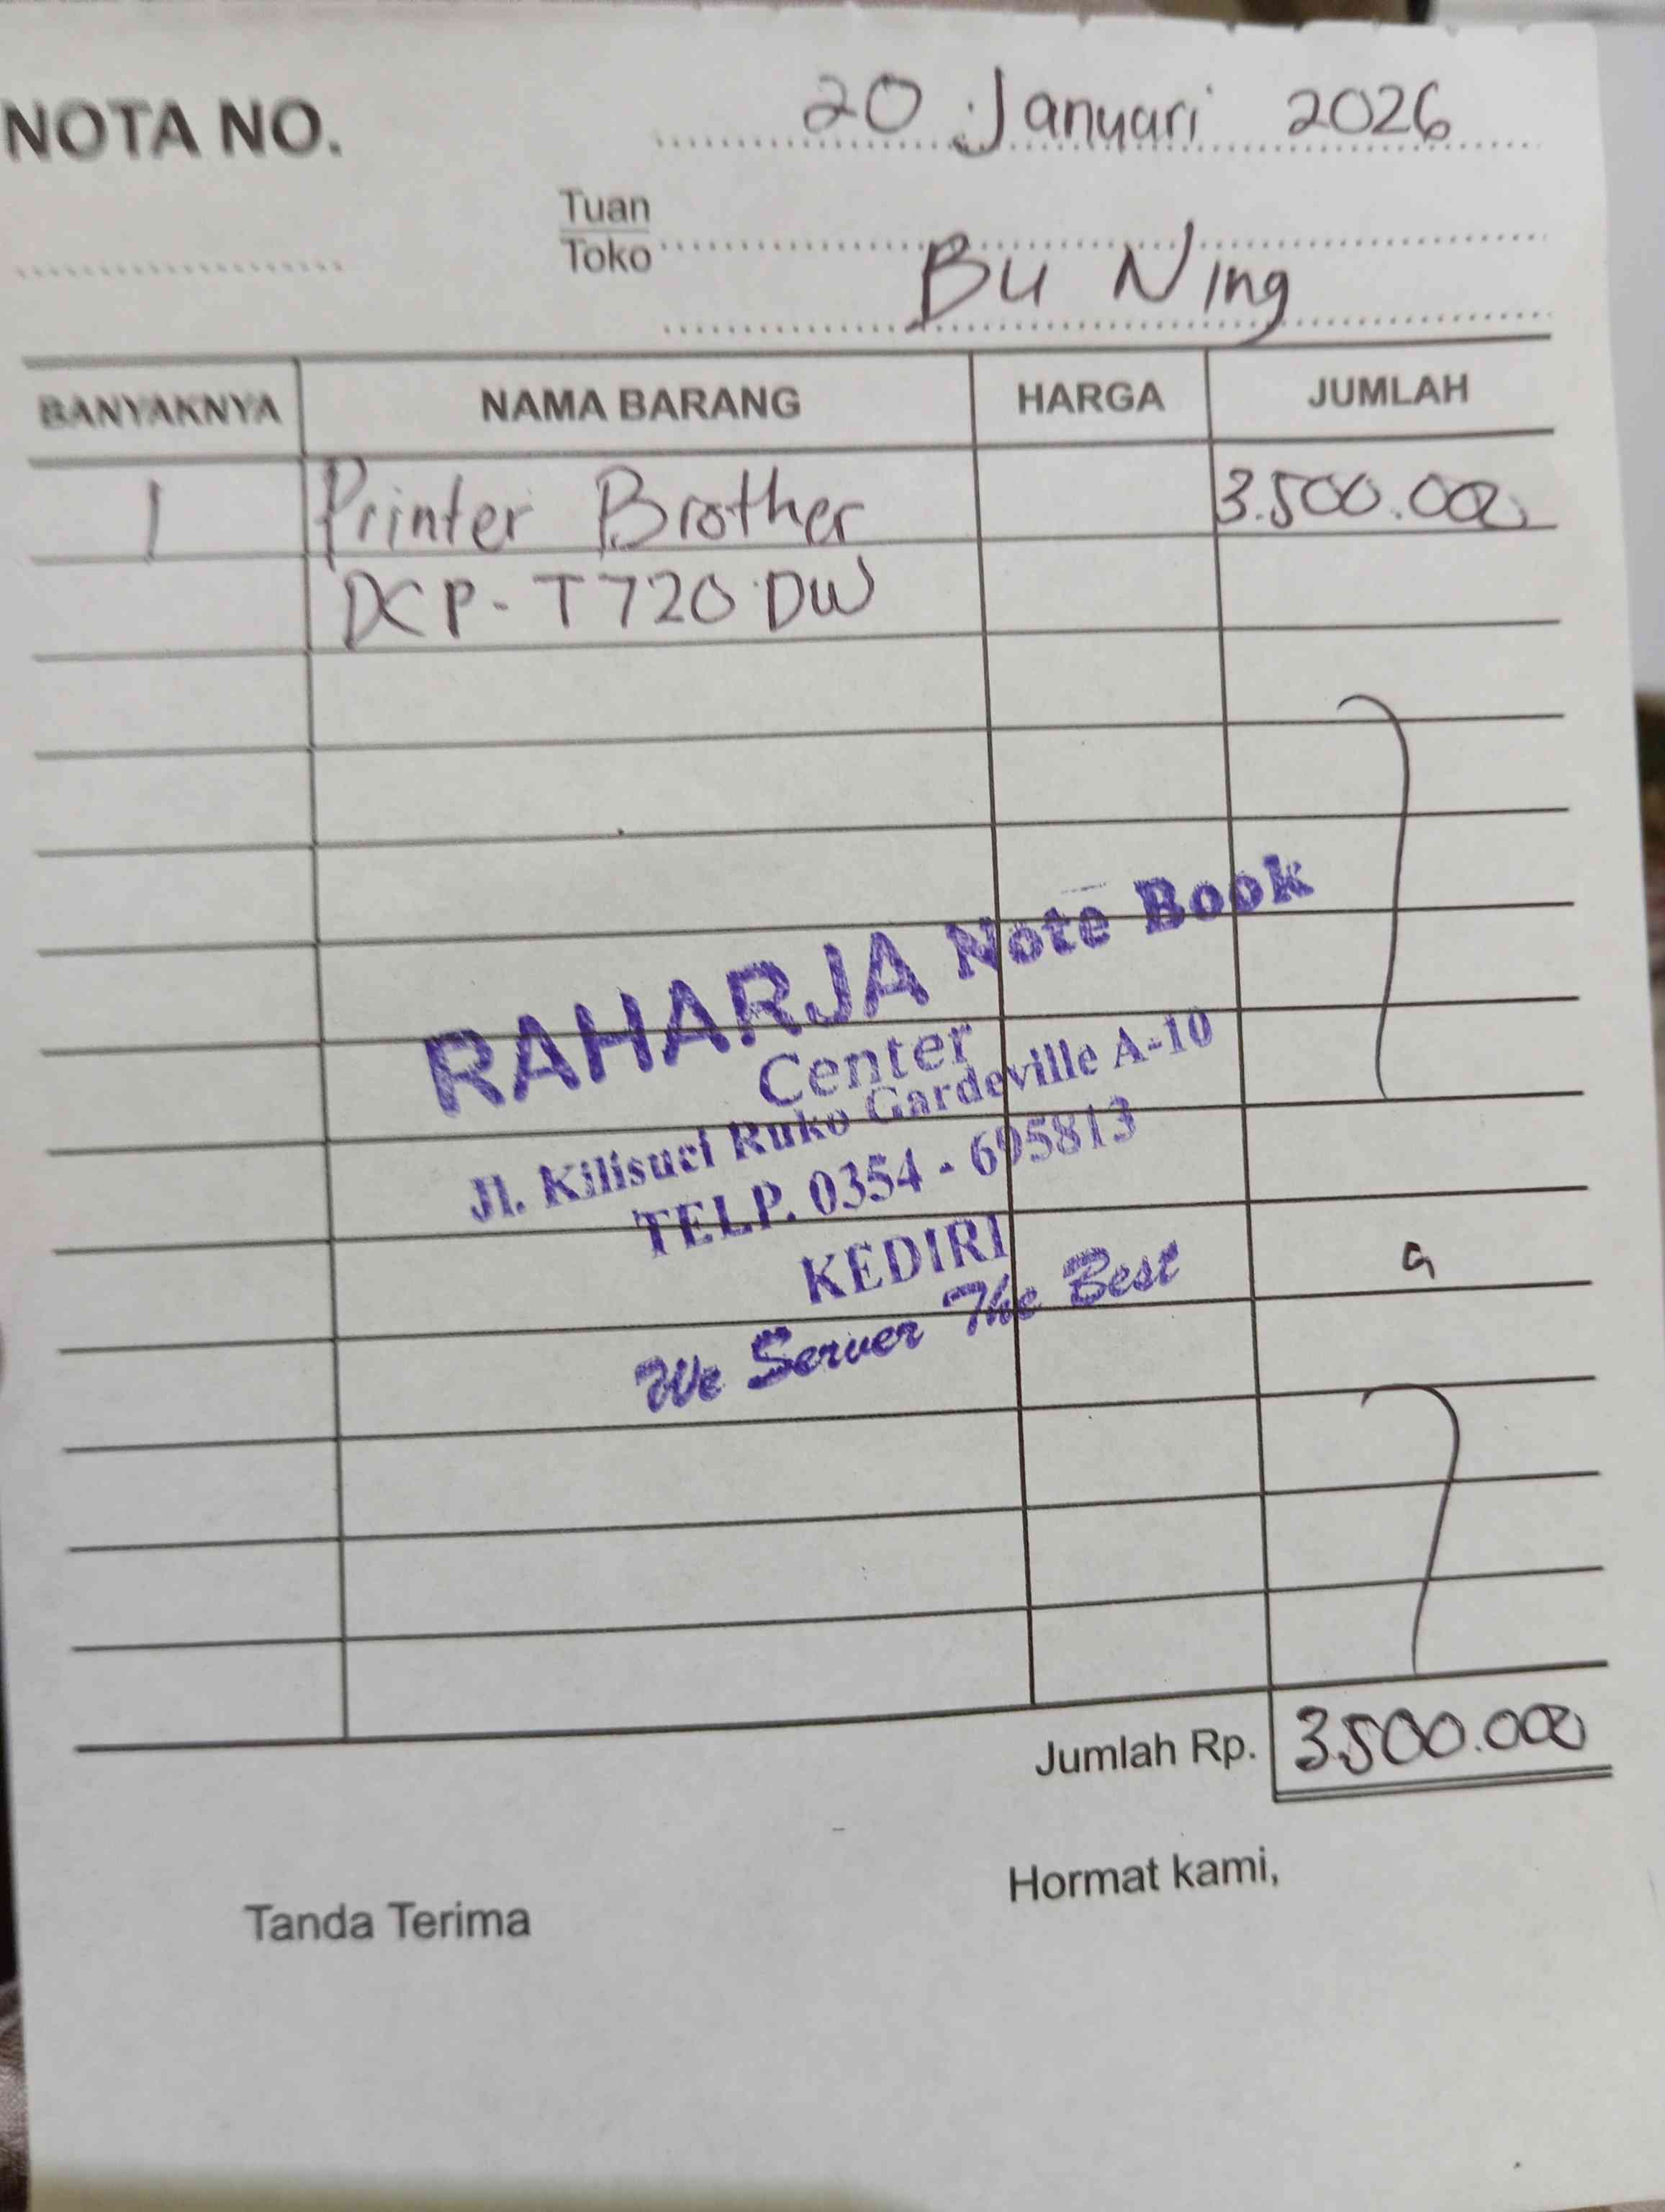 NOTA NO.
20 Januari 2026
Tuan
Toko
Bu Ning
BANYAKNYA NAMA BARANG HARGA JUMLAH
1 Printer Brother 3.500.000
DCP-T720 DW
RAHARJA Note Book
Center
Jl. Kilisuci Ruko Gardeville A-10
TELP. 0354 - 695813
KEDIRI
We Server The Best
Jumlah Rp. 3.500.000
Tanda Terima
Hormat kami,